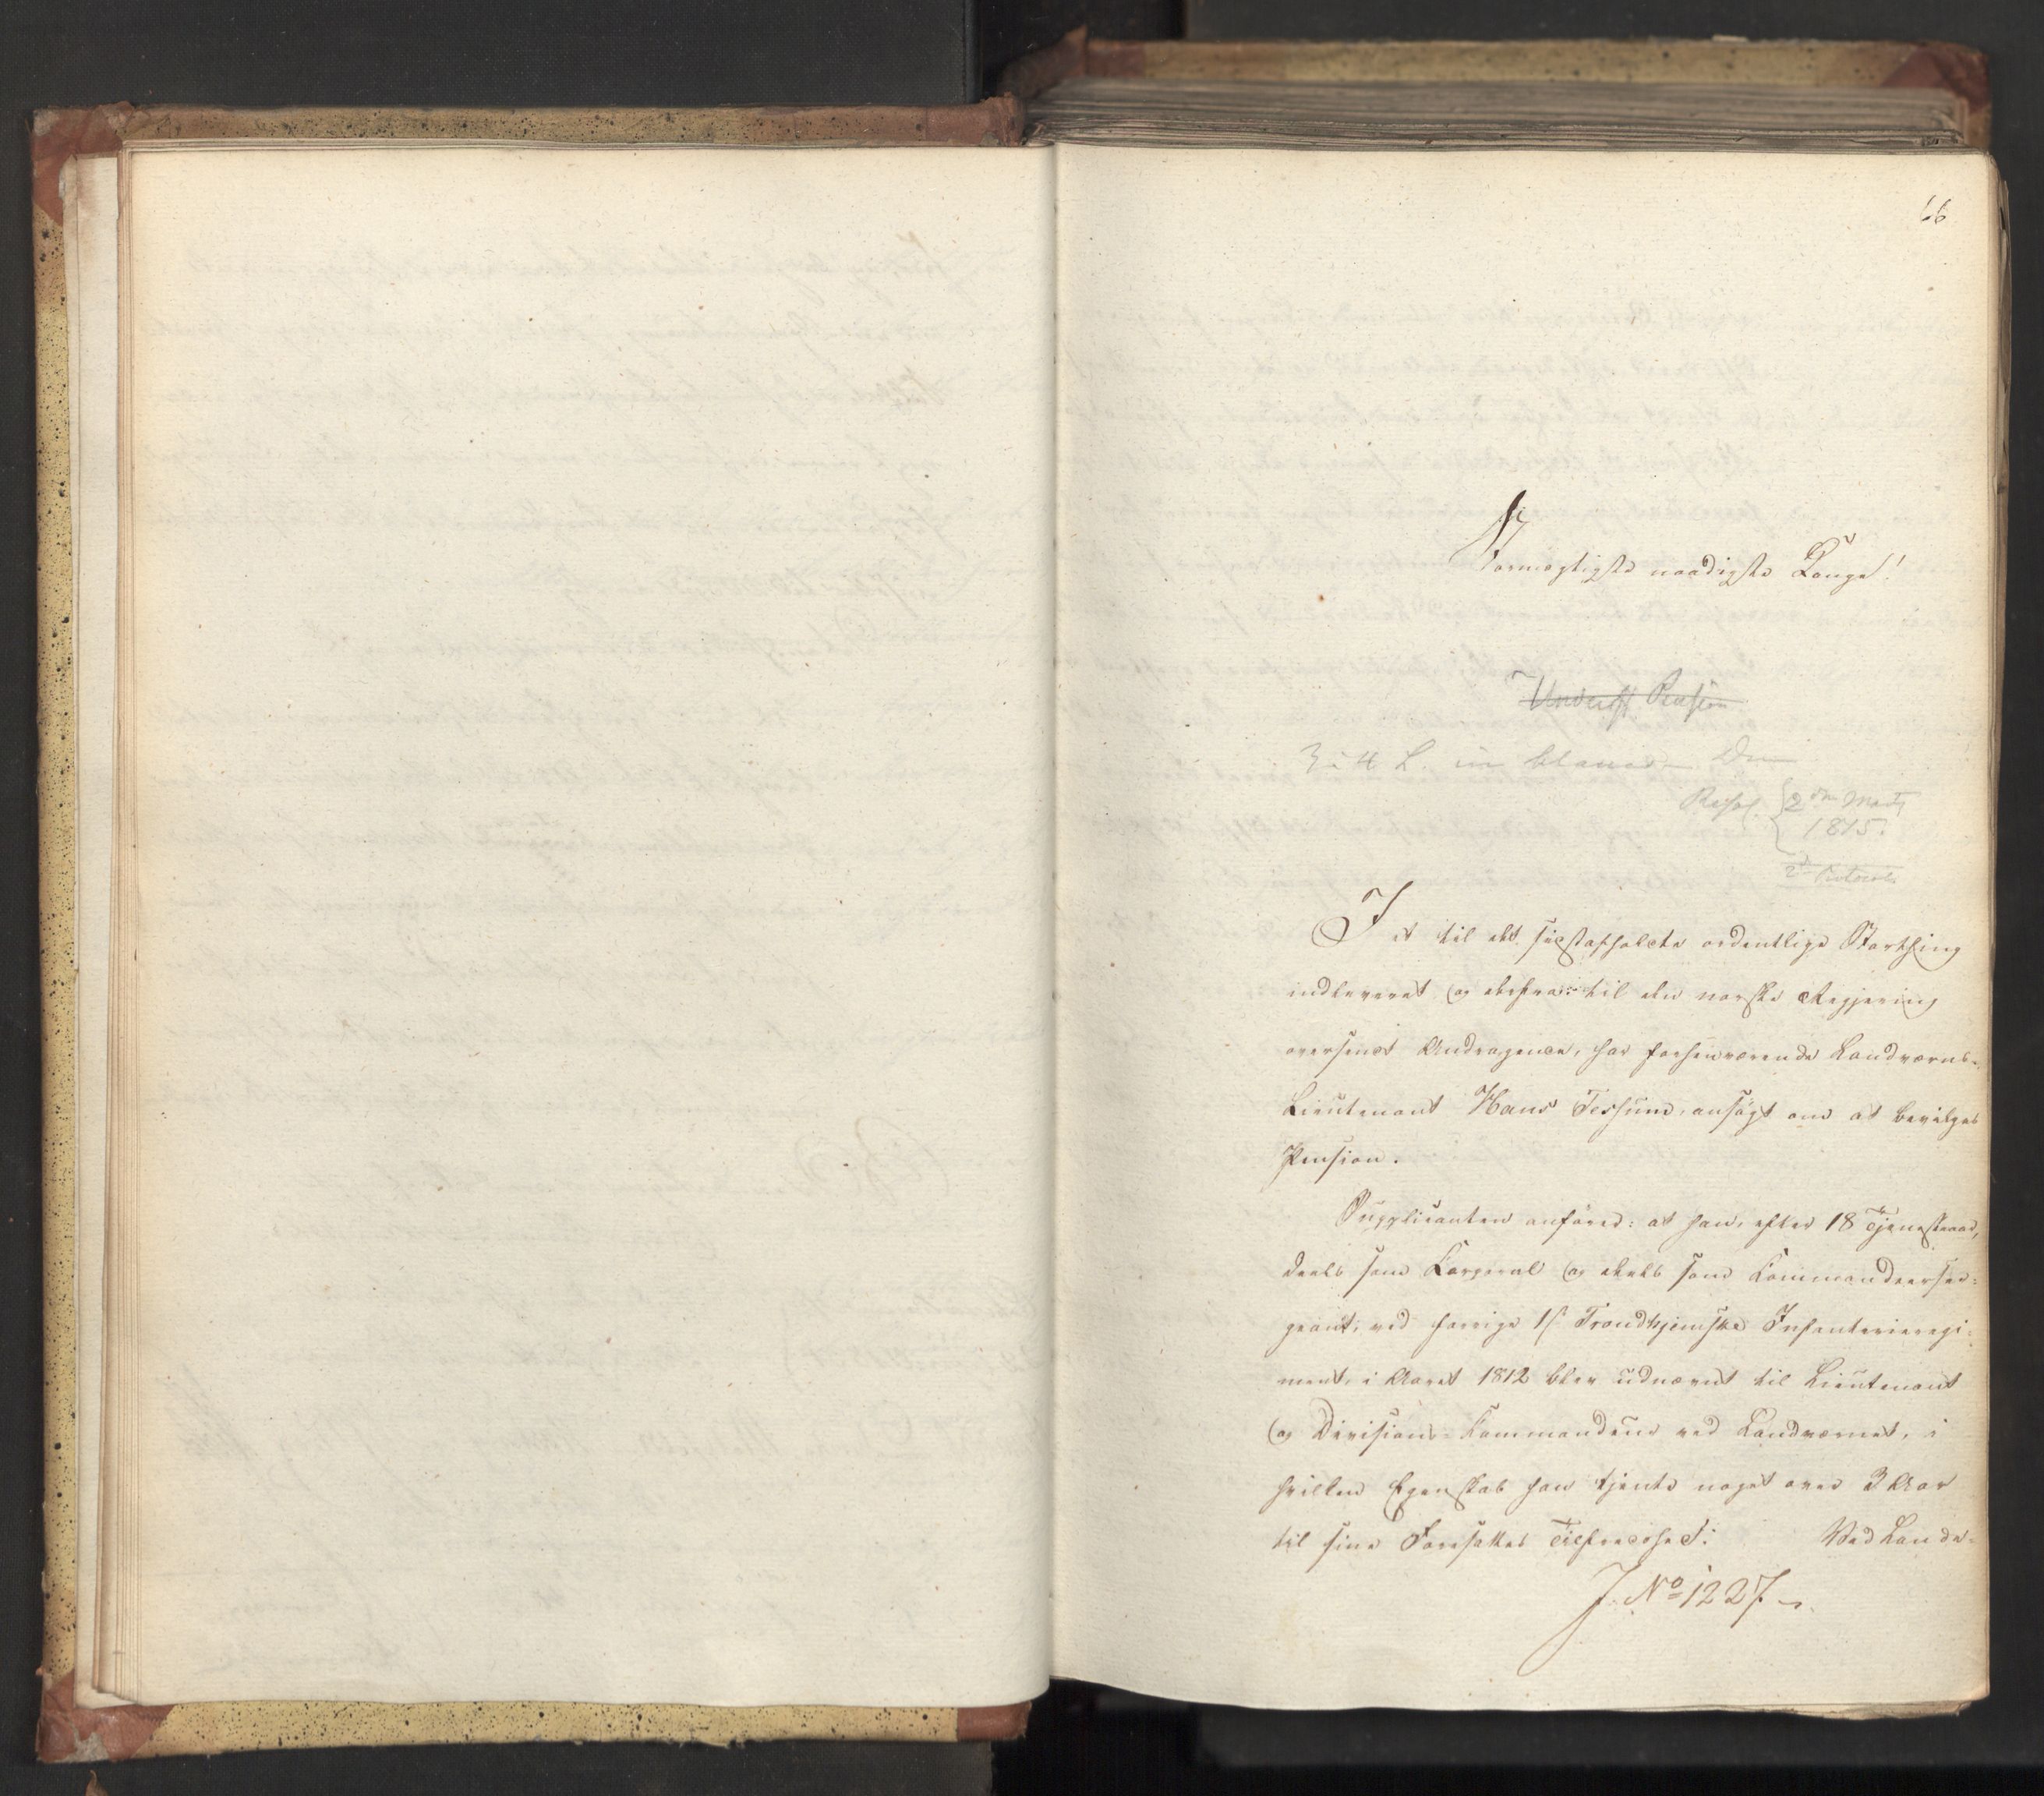 66
Stormægtigste naadigste Konge!
Underoff Pension
3 à 4 L. in blanco
Resol. 2den Marts
1815.
2d Protocol
I et til det sidstafholdte ordentlige Storthing
indleveret og derfra til den norske Regjering
oversendt Andragende, har forhenværende Landværns-
Lieutenant Hans Tessum, ansøgt om at bevilges
Pension.
Supplicanten anfører: at han, efter 18 Tjenesteaar,
deels som Corporal og deels som Commandeerser-
geant, ved forrige 1ste Trondhjemske Infanterieregi-
ment, i Aaret 1812 blev udnævnt til Lieutenant
og Divisions-Commandeur ved Landværnet, i
hvilken Egenskab han tjente noget over 3 Aar
til sine Foresattes Tilfredshed. Ved Lande-
J. No 1227